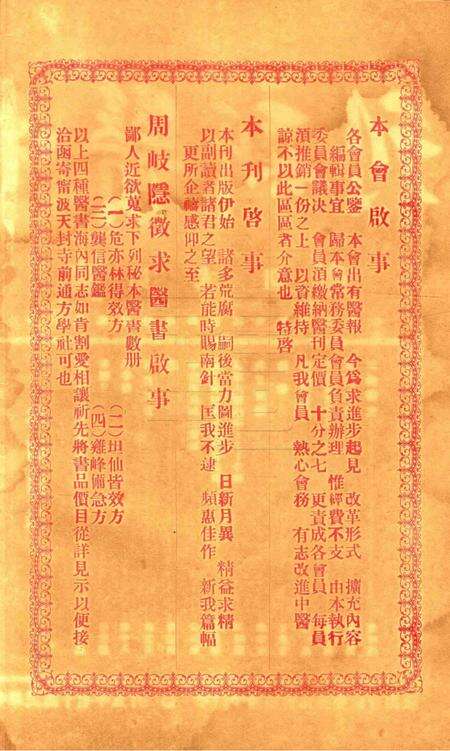 本會啟事
各會員公鑒　本會出有醫報　今爲求進步起見　改革形式　擴充內容
編輯事宜　歸本會常務委員會員負責辦理　惟經費不支　由本執行
委員會議决　會員須繳納醫刊定價　十分之七　更責成各會員　每員
須推銷一份之上　以資維持　凡我會員　熱心會務　有志改進中醫
諒不以此區區者介意也　特啓
本刊啓事
本刊出版伊始　諸多荒腐　嗣後當力圖進步　日新月異　精益求精
以副讀者諸君之望　若能時賜南針　匡我不逮　頻惠佳作　新我篇幅
更所企禱感仰之至
周岐隱徵求醫書啟事
鄙人近欲蒐求下列秘本醫書數册
（一）危亦林得效方　（二）坦仙皆效方
（三）龔信醫鑑　（四）雞峰備急方
以上四種醫書海內同志如肯割愛相讓祈先將書品價目從詳見示以便接
洽函寄甯波天封寺前通方學社可也